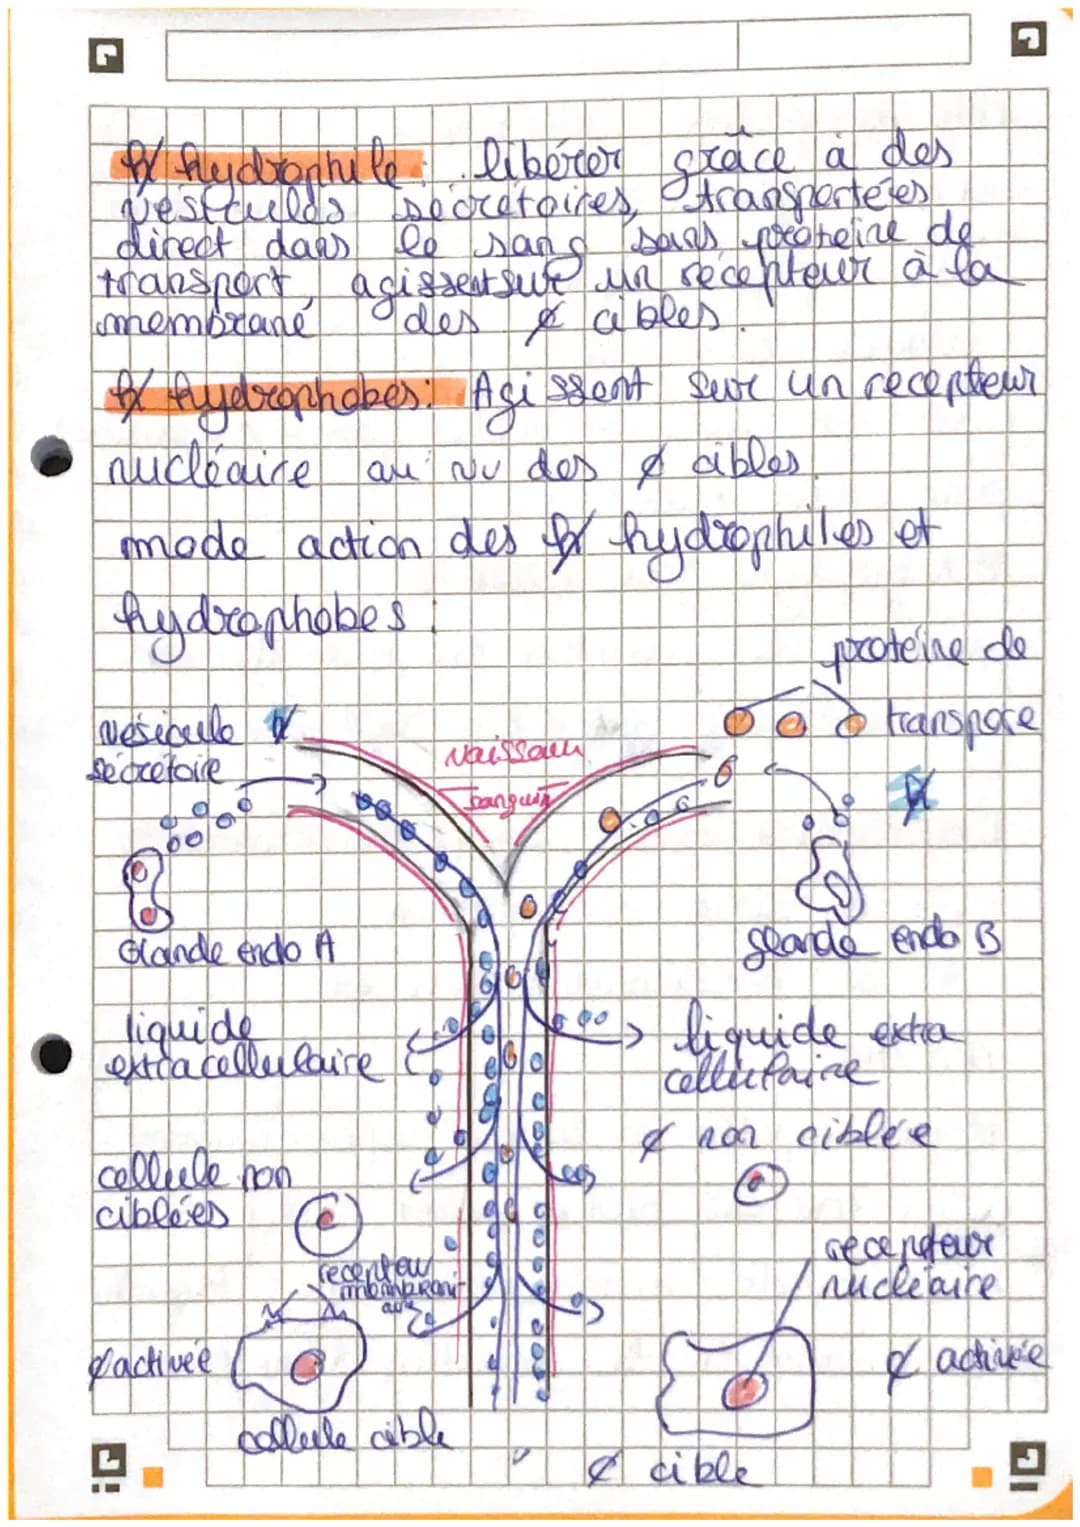 hydrophile : libérer grâce à des
vésiculds sécrétoires, transportées
direct dans le sang sans proteine de
transport, agissent sur un récepteur à la
membrane des ¢ cibles.
hydrophobes: Agissent sur un recepteur
nucléaire au nv des ¢ cibles.
mode action des hydrophiles et
hydrophobes :
proteine de
transpore
vésicule
sécrétoire
Vaisseau
sanguin
Glande endo A
glande endo B
liquide
extracellulaire
liquide extra
cellulaire
¢ non ciblée
cellule non
ciblées
recepteur
membrani
aire
recepteur
nucléaire
¢ activée
¢ activée
cellule cible
¢ cible